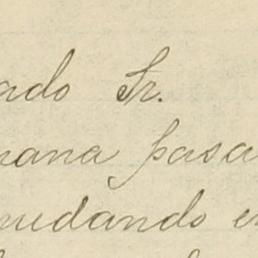 ado Sr.
mana pasa
mudando e